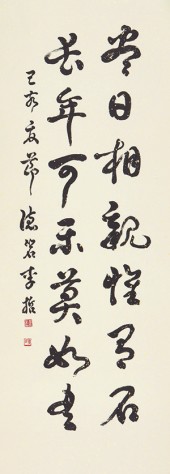 尽日相親惟有石
长年可乐莫如书
己亥夏节 德岩李哲